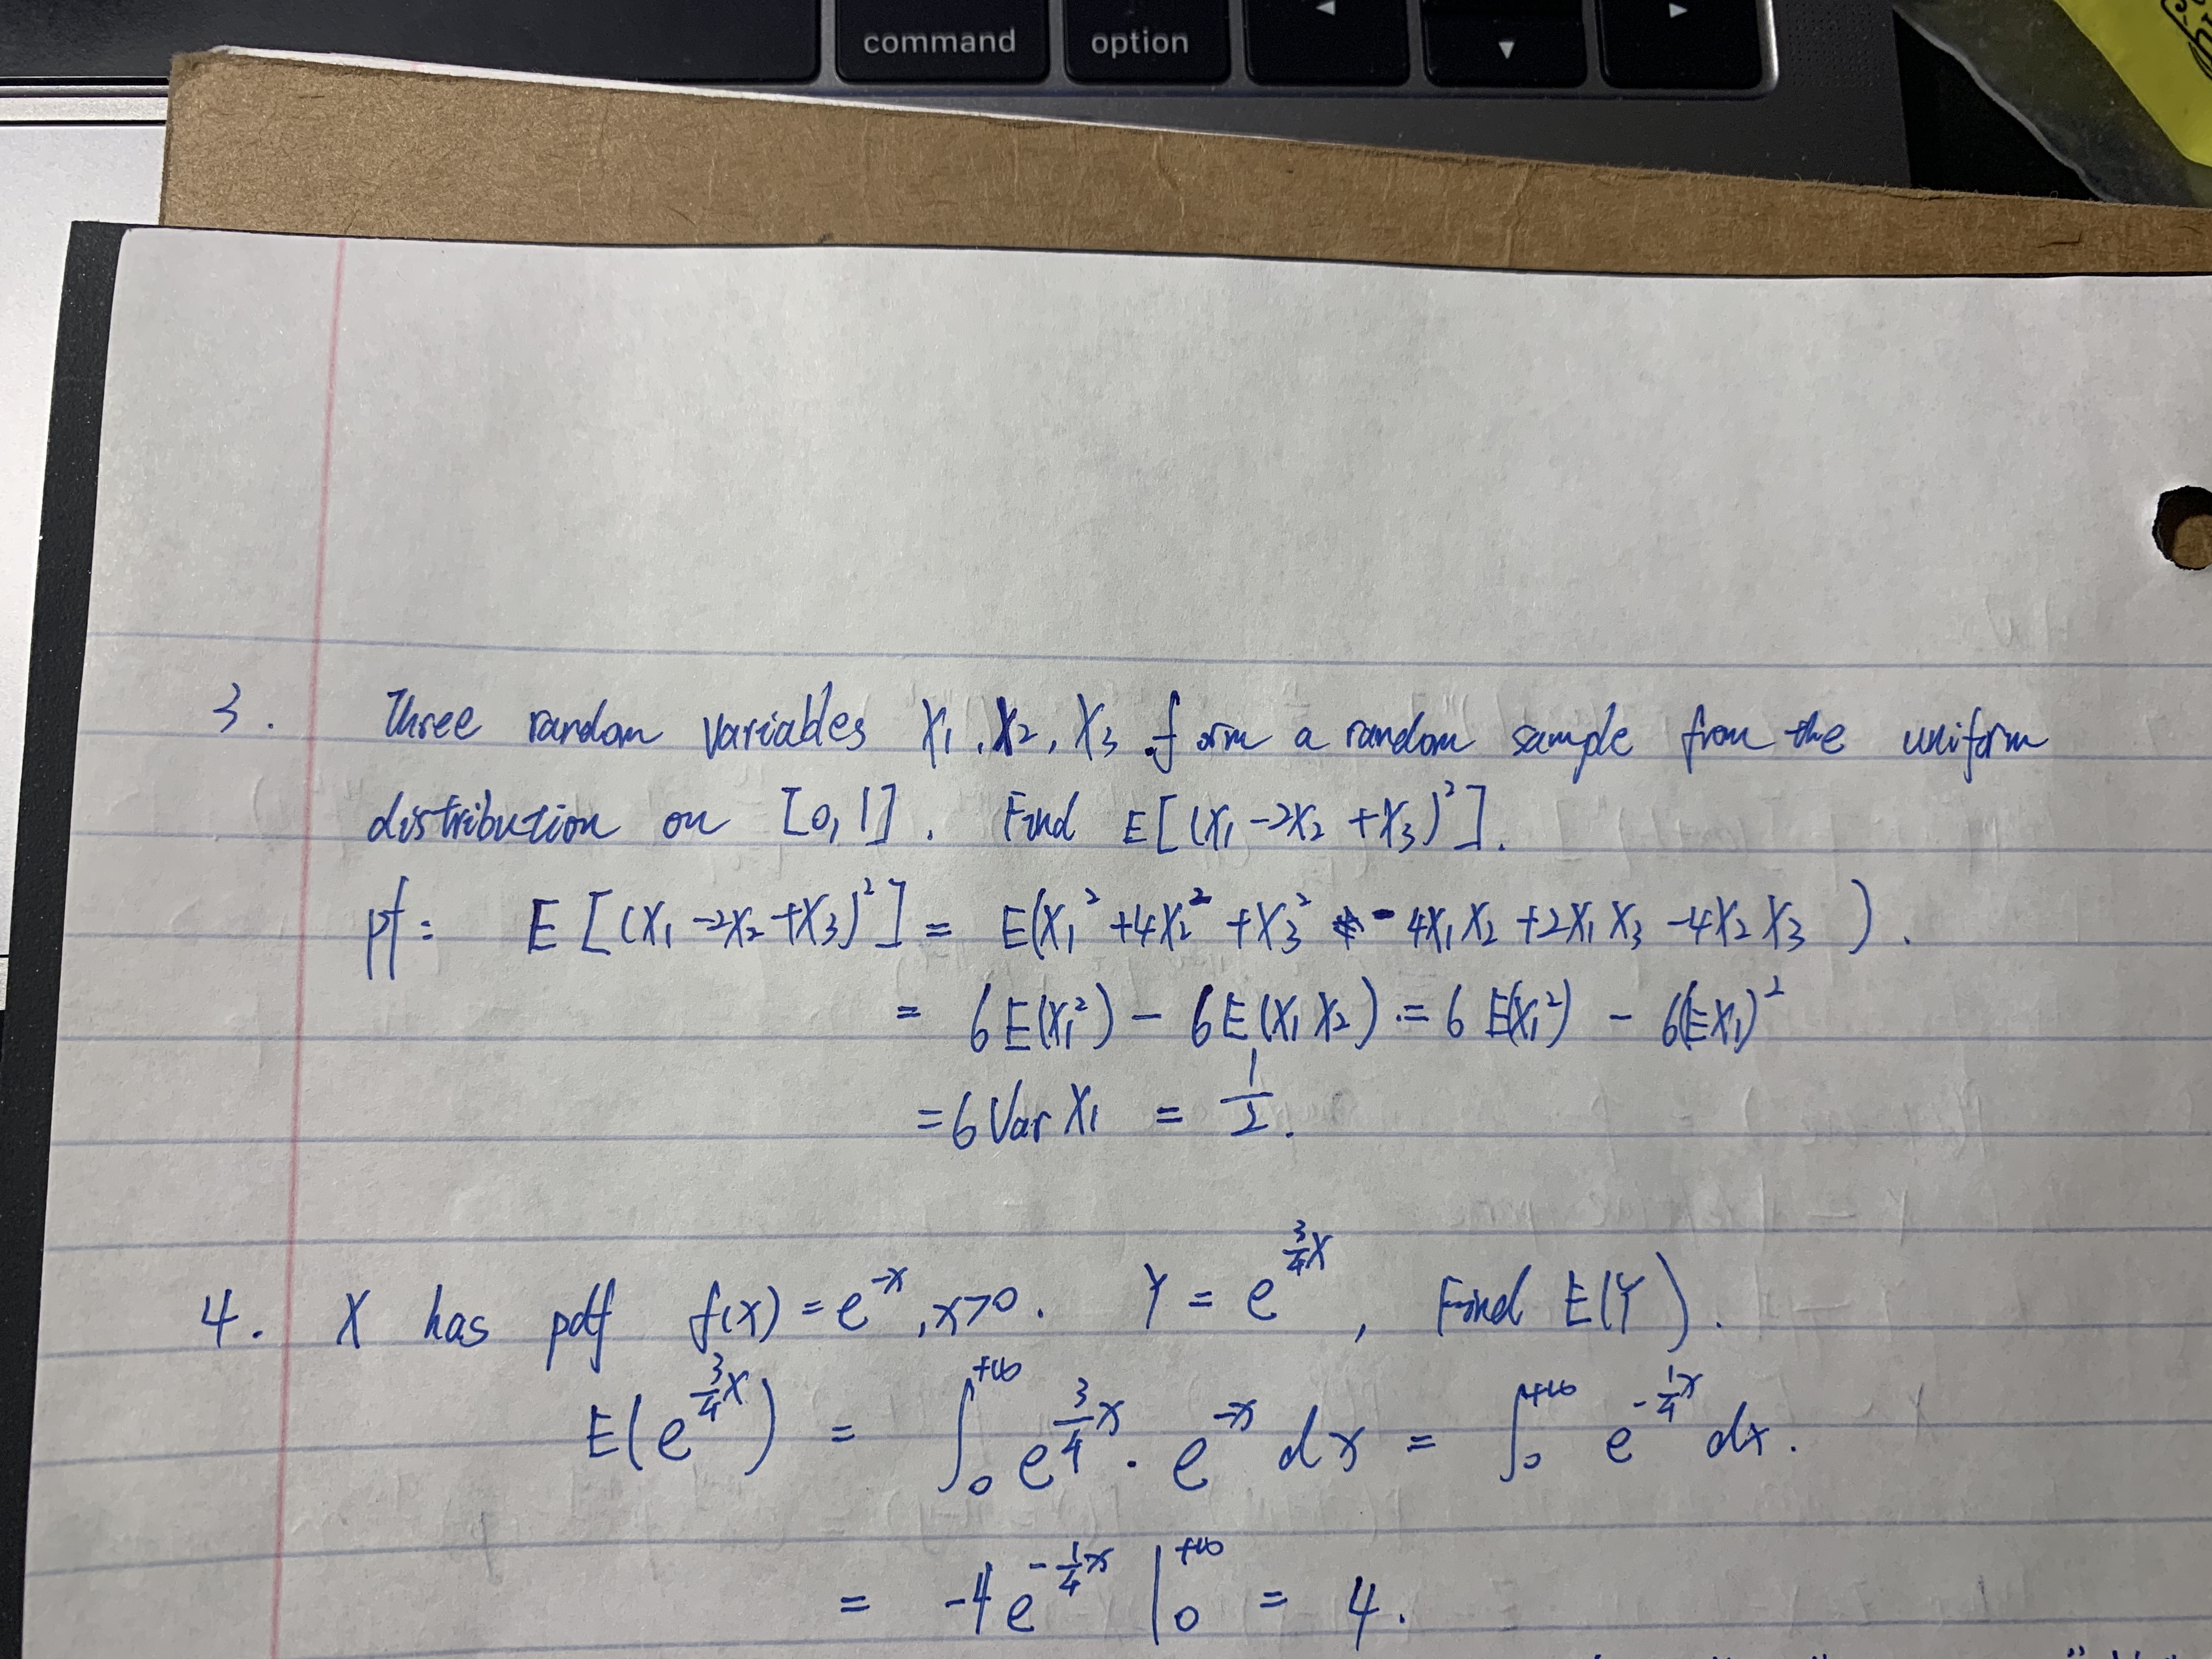 command option
3. Three random variables X₁, X₂, X₃ form a random sample from the uniform
distribution on [0,1]. Find E[(X₁-2X₂+X₃)²].
pf: E[(X₁-2X₂+X₃)²] = E(X₁²+4X₂²+X₃² -4X₁X₂+2X₁X₃-4X₂X₃).
= 6E(X₁²) - 6E(X₁X₂) = 6E(X₁²) - 6(EX₁)²
= 6 Var X₁ = 1/2.
4. X has pdf f(x) = e^{-x}, x>0. Y = e^{3/4 X}, Find E(Y).
E(e^{3/4 X}) = ∫₀^{+∞} e^{3/4 x} · e^{-x} dx = ∫₀^{+∞} e^{-1/4 x} dx.
= -4e^{-1/4 x} |₀^{+∞} = 4.